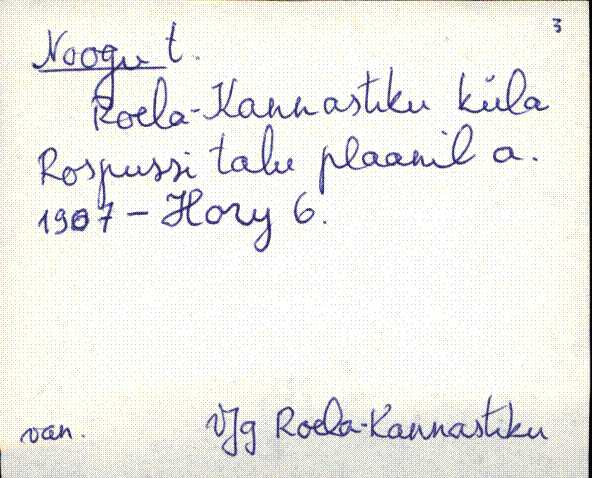 3
Noogu t.
Roela-Kannastiku küla
Rospussi talu plaanil a.
1907 – Hozy 6.
van. VJg Roela-Kannastiku